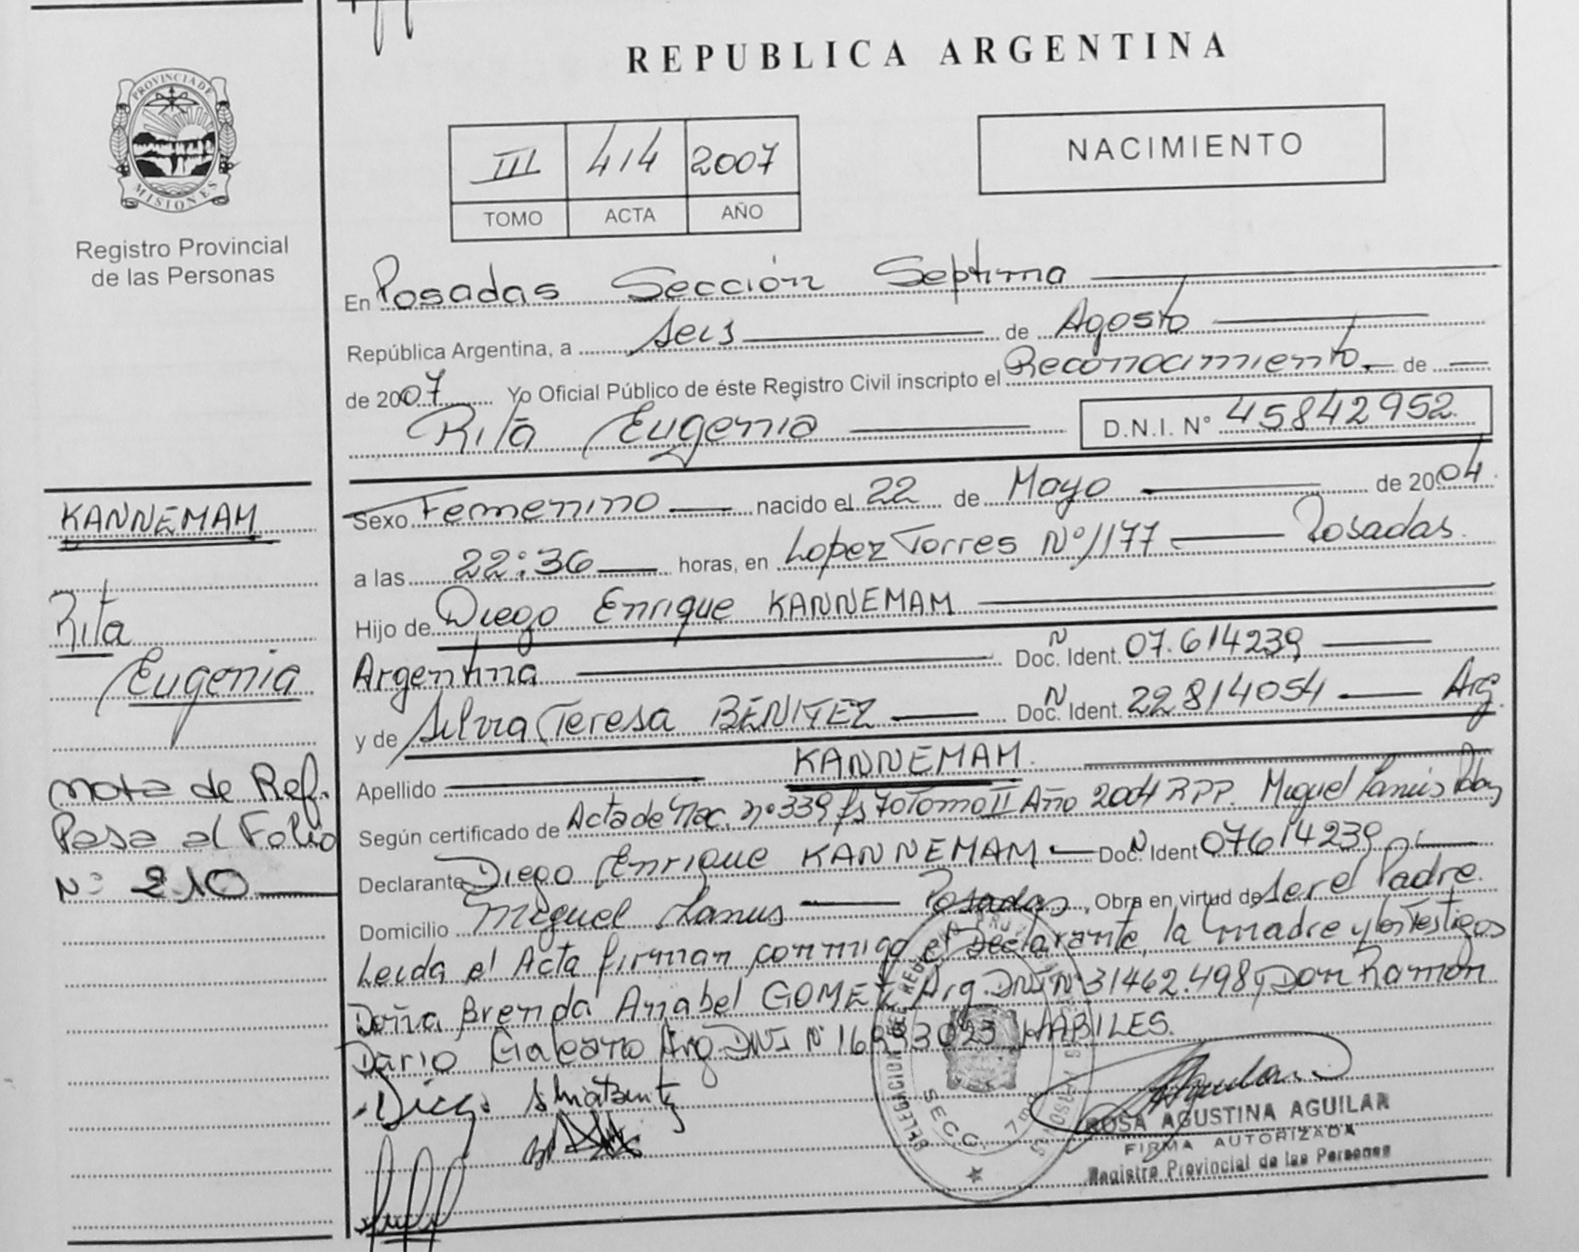 REPUBLICA ARGENTINA
PROVINCIA DE
MISIONES
Registro Provincial
de las Personas
III 414 2007
TOMO ACTA AÑO
NACIMIENTO
En Posadas Sección Septima
República Argentina, a Seis de Agosto
de 2007 Yo Oficial Público de éste Registro Civil inscripto el Reconocimiento de
Rita Eugenia D.N.I. N° 45842952
KANNEMAM
Rita
Eugenia
Nota de Ref.
Pasa al Folio
N° 210
Sexo Femenino nacido el 22 de Mayo de 2004
a las 22:36 horas, en Lopez Torres N° 1177 Posadas.
Hijo de Diego Enrique KANNEMAM
Argentina Doc. Ident. 07.614239
y de Silvia Teresa BENITEZ Doc. Ident. 22814054 Arg.
Apellido KANNEMAM
Según certificado de Acta de Nac. n° 339 fs 70 Tomo II Año 2004 RPP. Miguel Lanus
Declarante Diego Enrique KANNEMAM Doc. Ident 07614239
Domicilio Miguel Lanus Posadas, Obra en virtud de ser el Padre.
Leida el Acta firman conmigo el Declarante, la madre y los Testigos
Doña Brenda Anabel GOMEZ Arg. DNI N° 31462.498 y Don Ramon
Dario Galeano Arg DNI N° HABILES.
Diego
DELEGACION DEL REGISTRO
SECC. 7
ROSA AGUSTINA AGUILAR
FIRMA AUTORIZADA
Registro Provincial de las Personas